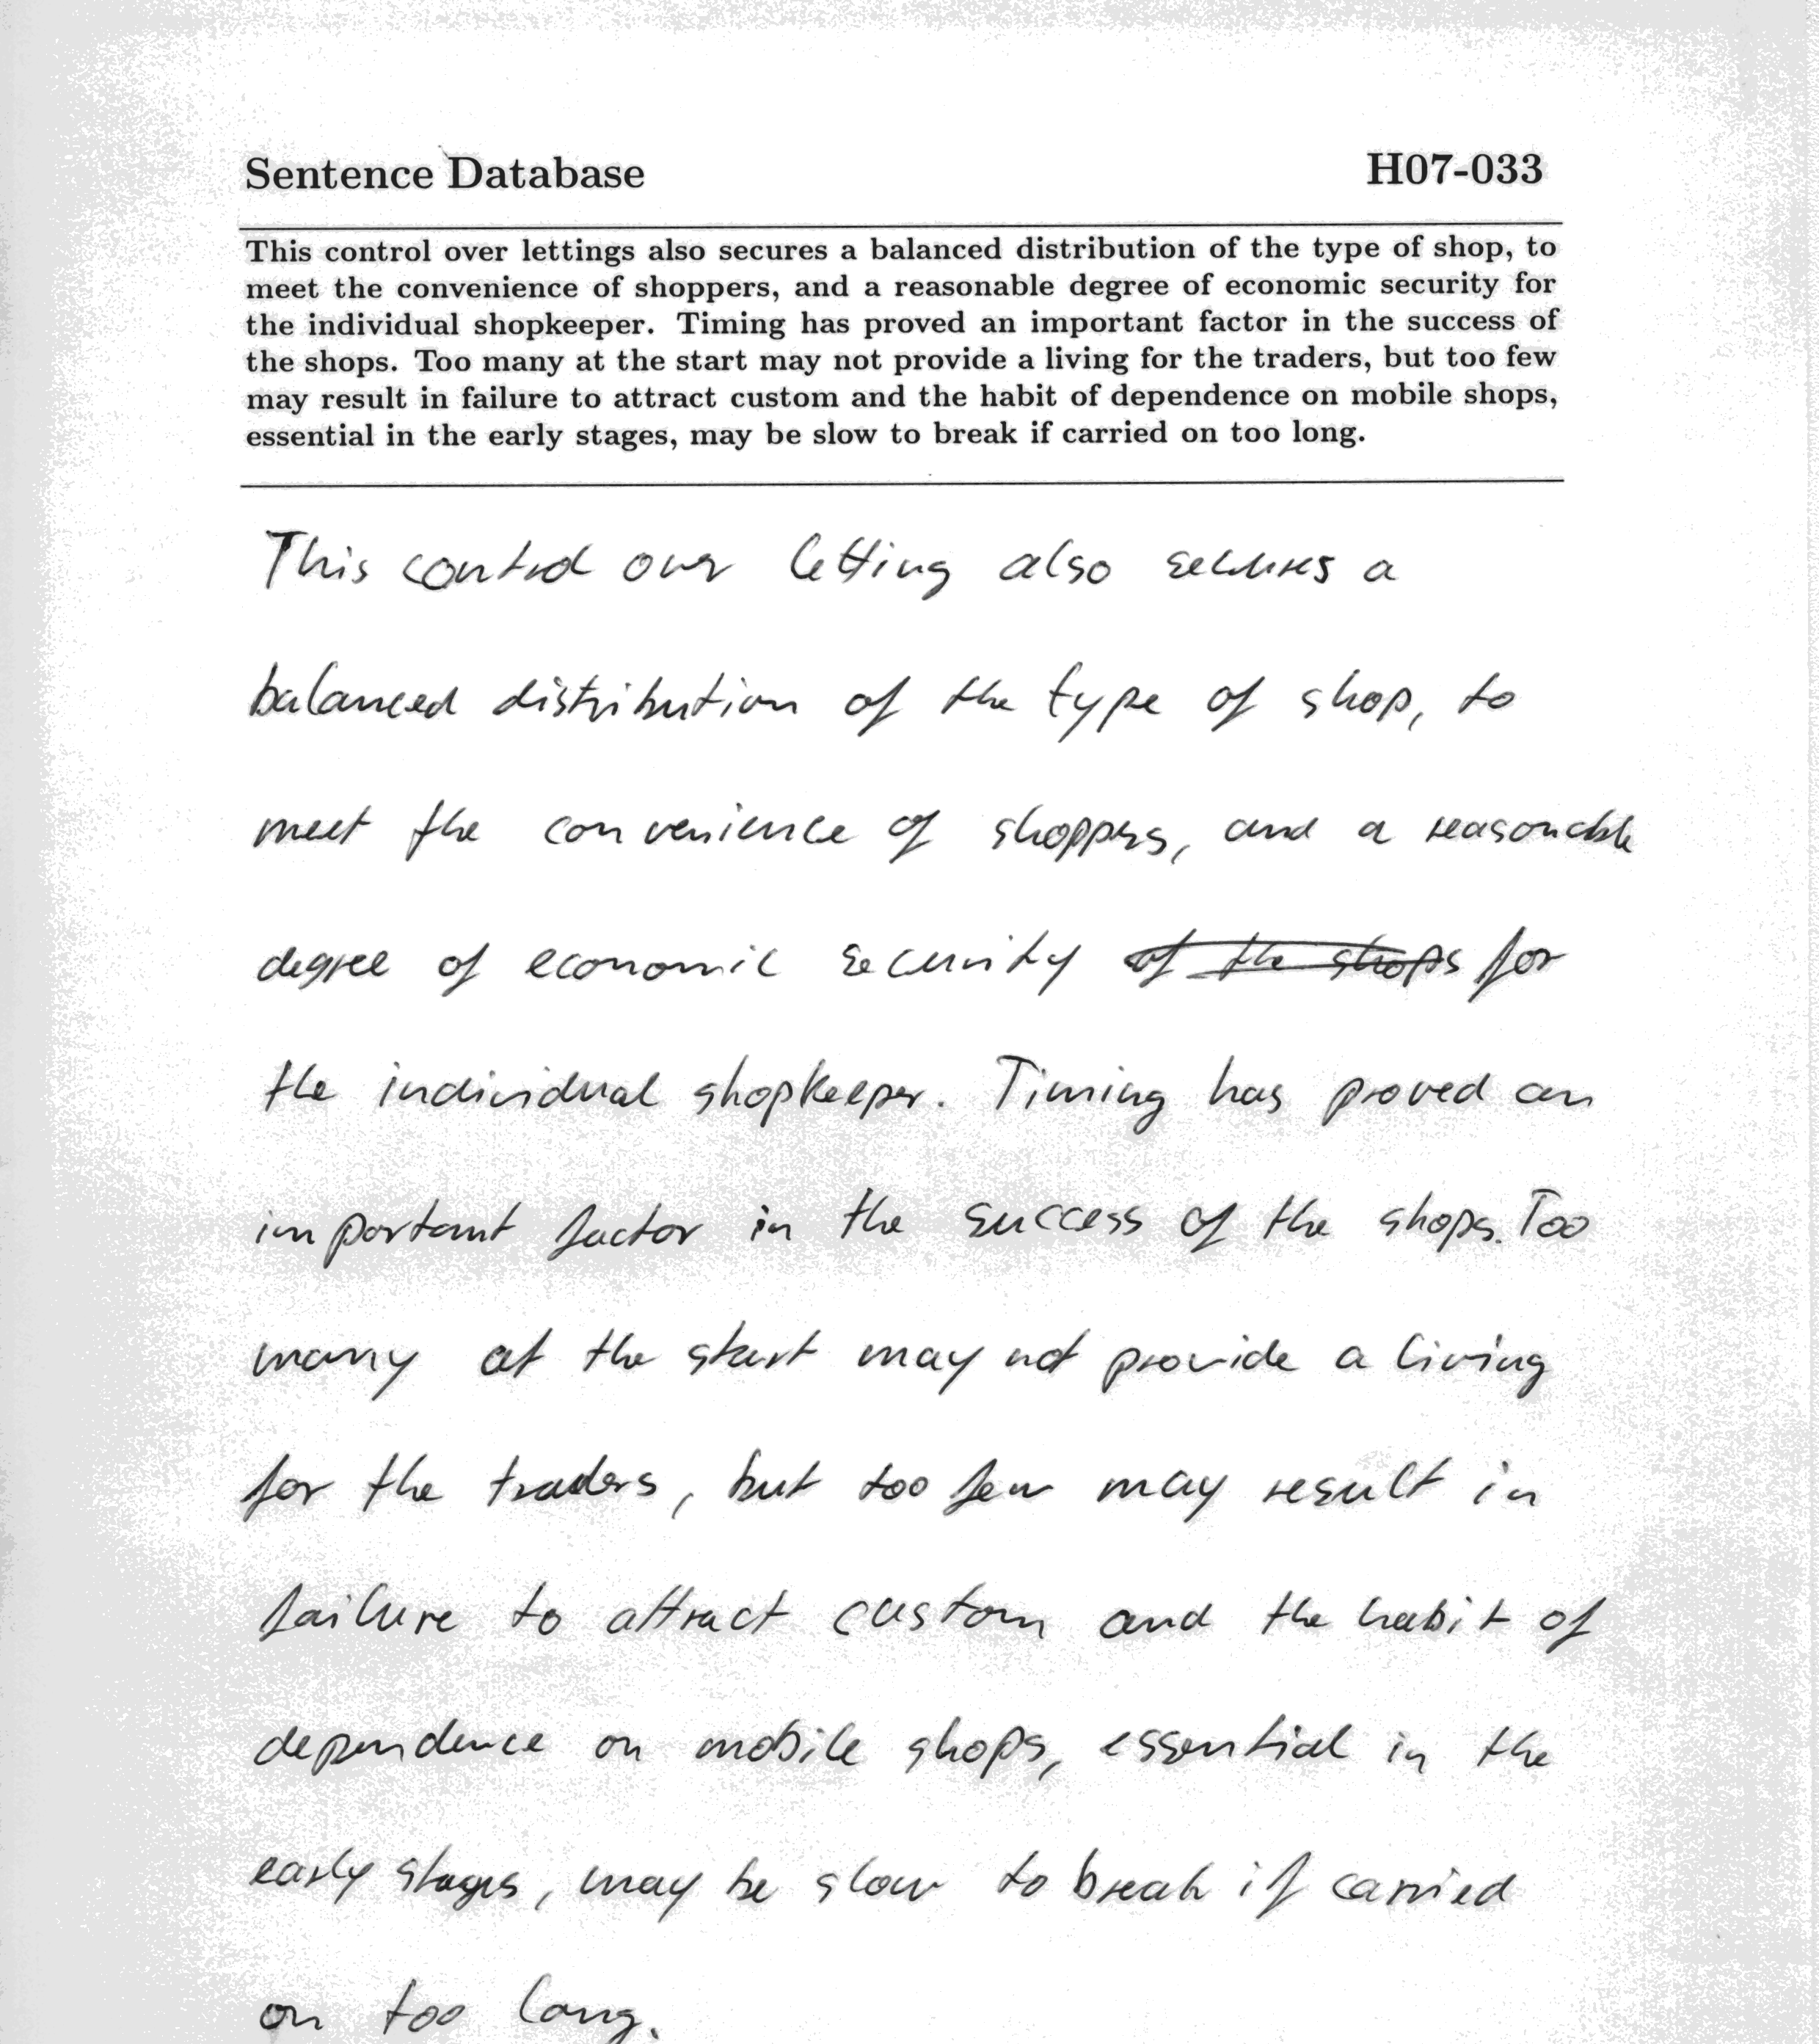 Sentence Database H07-033
This control over lettings also secures a balanced distribution of the type of shop, to
meet the convenience of shoppers, and a reasonable degree of economic security for
the individual shopkeeper. Timing has proved an important factor in the success of
the shops. Too many at the start may not provide a living for the traders, but too few
may result in failure to attract custom and the habit of dependence on mobile shops,
essential in the early stages, may be slow to break if carried on too long.
This control over letting also secures a
balanced distribution of the type of shop, to
meet the convenience of shoppers, and a reasonable
degree of economic security of the shops for
the individual shopkeeper. Timing has proved an
important factor in the success of the shops. Too
many at the start may not provide a living
for the traders, but too few may result in
failure to attract custom and the habit of
dependence on mobile shops, essential in the
early stages, may be slow to break if carried
on too long.